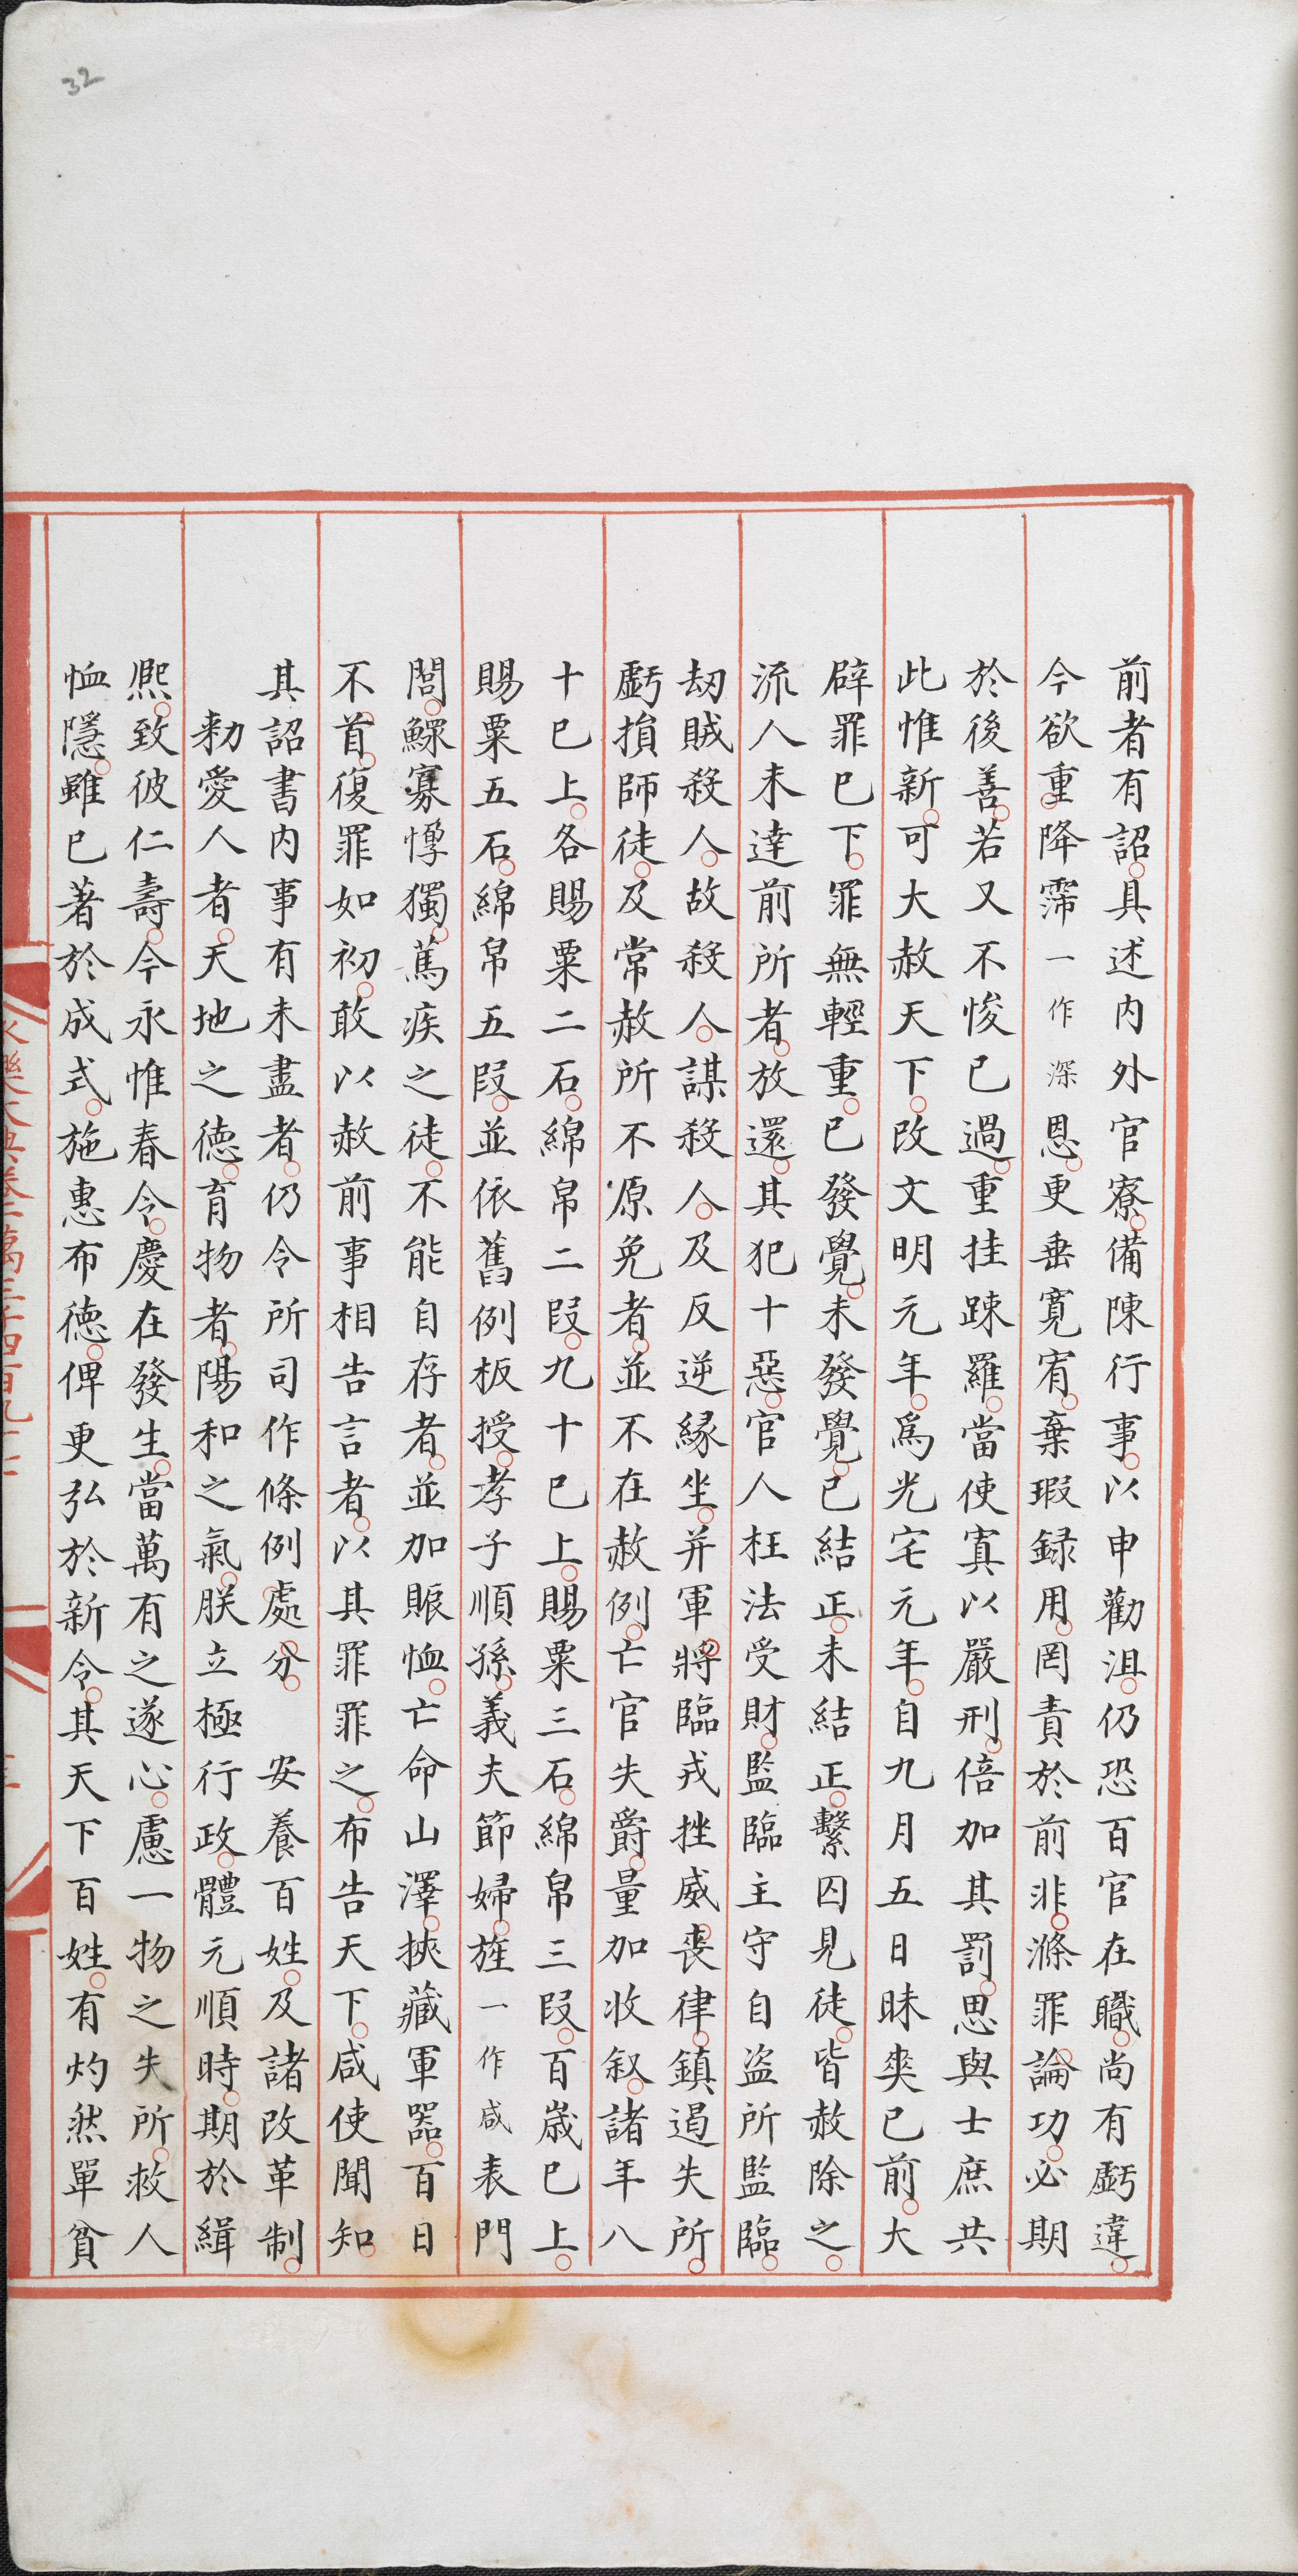 32
前者有詔具述内外官寮備陳行事以申勸沮仍恐百官在職尚有虧違
今欲重降霈一作深恩更垂寬宥棄瑕録用罔責於前非滌罪論功必期
於後善若又不悛已過重挂踈羅當使寘以嚴刑倍加其罰思與士庶共
此惟新可大赦天下改文明元年爲光宅元年自九月五日昧爽已前大
辟罪已下罪無輕重已發覺未發覺已結正未結正繫囚見徒皆赦除之
流人未達前所者放還其犯十惡官人枉法受財監臨主守自盜所監臨
劫賊殺人故殺人謀殺人及反逆緣坐并軍將臨戎挫威喪律鎮遏失所
虧損師徒及常赦所不原免者並不在赦例亡官失爵量加收叙諸年八
十已上各賜粟二石綿帛二叚九十已上賜粟三石綿帛三叚百歲已上
賜粟五石綿帛五叚並依舊例板授孝子順孫義夫節婦旌一作咸表門
閭鰥寡惸獨篤疾之徒不能自存者並加賑恤亡命山澤挾藏軍器百日
不首復罪如初敢以赦前事相告言者以其罪罪之布告天下咸使聞知
其詔書内事有未盡者仍令所司作條例處分　安養百姓及諸改革制
　勑愛人者天地之德育物者陽和之氣朕立極行政體元順時期於緝
熈致彼仁壽今永惟春令慶在發生當萬有之遂心慮一物之失所救人
恤隱雖已著於成式施惠布德俾更弘於新令其天下百姓有灼然單貧